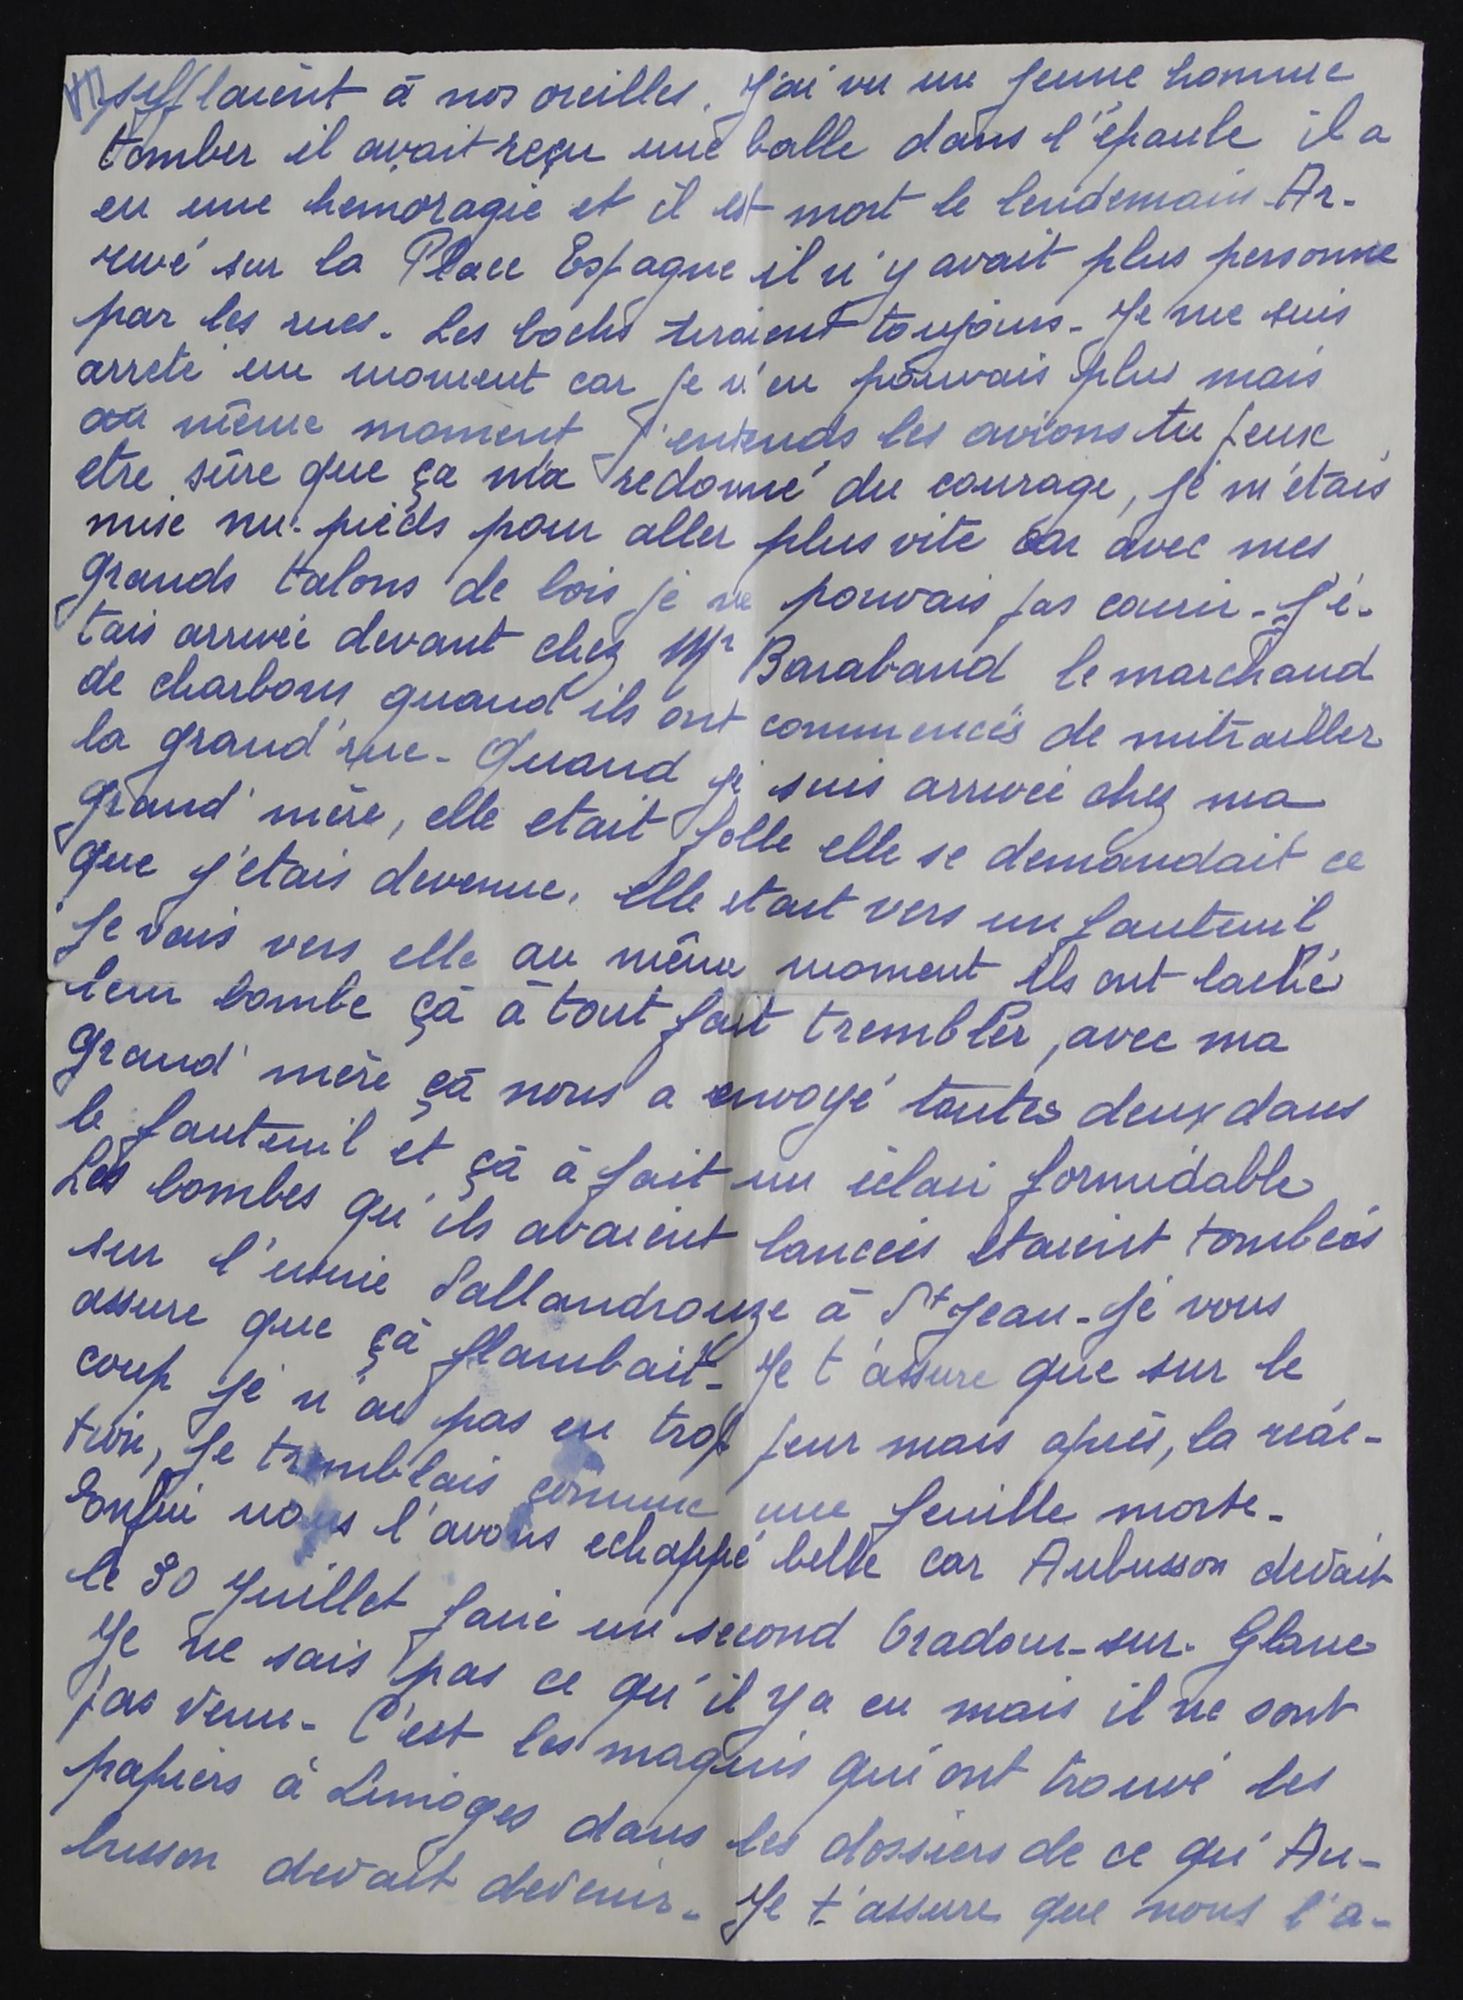 sifflaient à nos oreilles. J'ai vu un jeune homme
tomber il avait reçu une balle dans l'épaule il a
eu une hemoragie et il est mort le lendemain Ar-
rivé sur la Place Espagne il n'y avait plus personne
par les rues. Les bochs tiraient toujours. Je me suis
arreté un moment car je n'en pouvais plus mais
au même moment j'entends les avions tu peux
etre sûre que ça m'a redonné du courage, je m'étais
mise nu-pieds pour aller plus vite car avec mes
grands talons de bois je ne pouvais pas courir. J'é-
tais arrivée devant chez Mr Barabaud le marchand
de charbons quand ils ont commencés de mitrailler
la grand'rue. Quand je suis arrivée chez ma
grand'mère, elle etait folle elle se demandait ce
que j'etais devenue. elle etait vers un fauteuil
je vais vers elle au même moment ils ont laché
leur bombe çà à tout fait trembler, avec ma
grand'mère çà nous a envoyé toutes deux dans
le fauteuil et çà à fait un éclair formidable
Les bombes qu'ils avaient lancées etaient tombées
sur l'usine Sallandrouze à St Jean. Je vous
assure que çà flambait. Je t'assure que sur le
coup je n'ai pas eu trop peur mais après, la réac-
tion, je tremblais comme une feuille morte.
Enfin nous l'avons echappé belle car Aubusson devait
le 30 Juillet faire un second Oradour-sur-Glane
Je ne sais pas ce qu'il y a eu mais il ne sont
pas venu. C'est les maquis qui ont trouvé les
papiers à Limoges dans les dossiers de ce qu'Au-
busson devait devenir. Je t'assure que nous l'a-